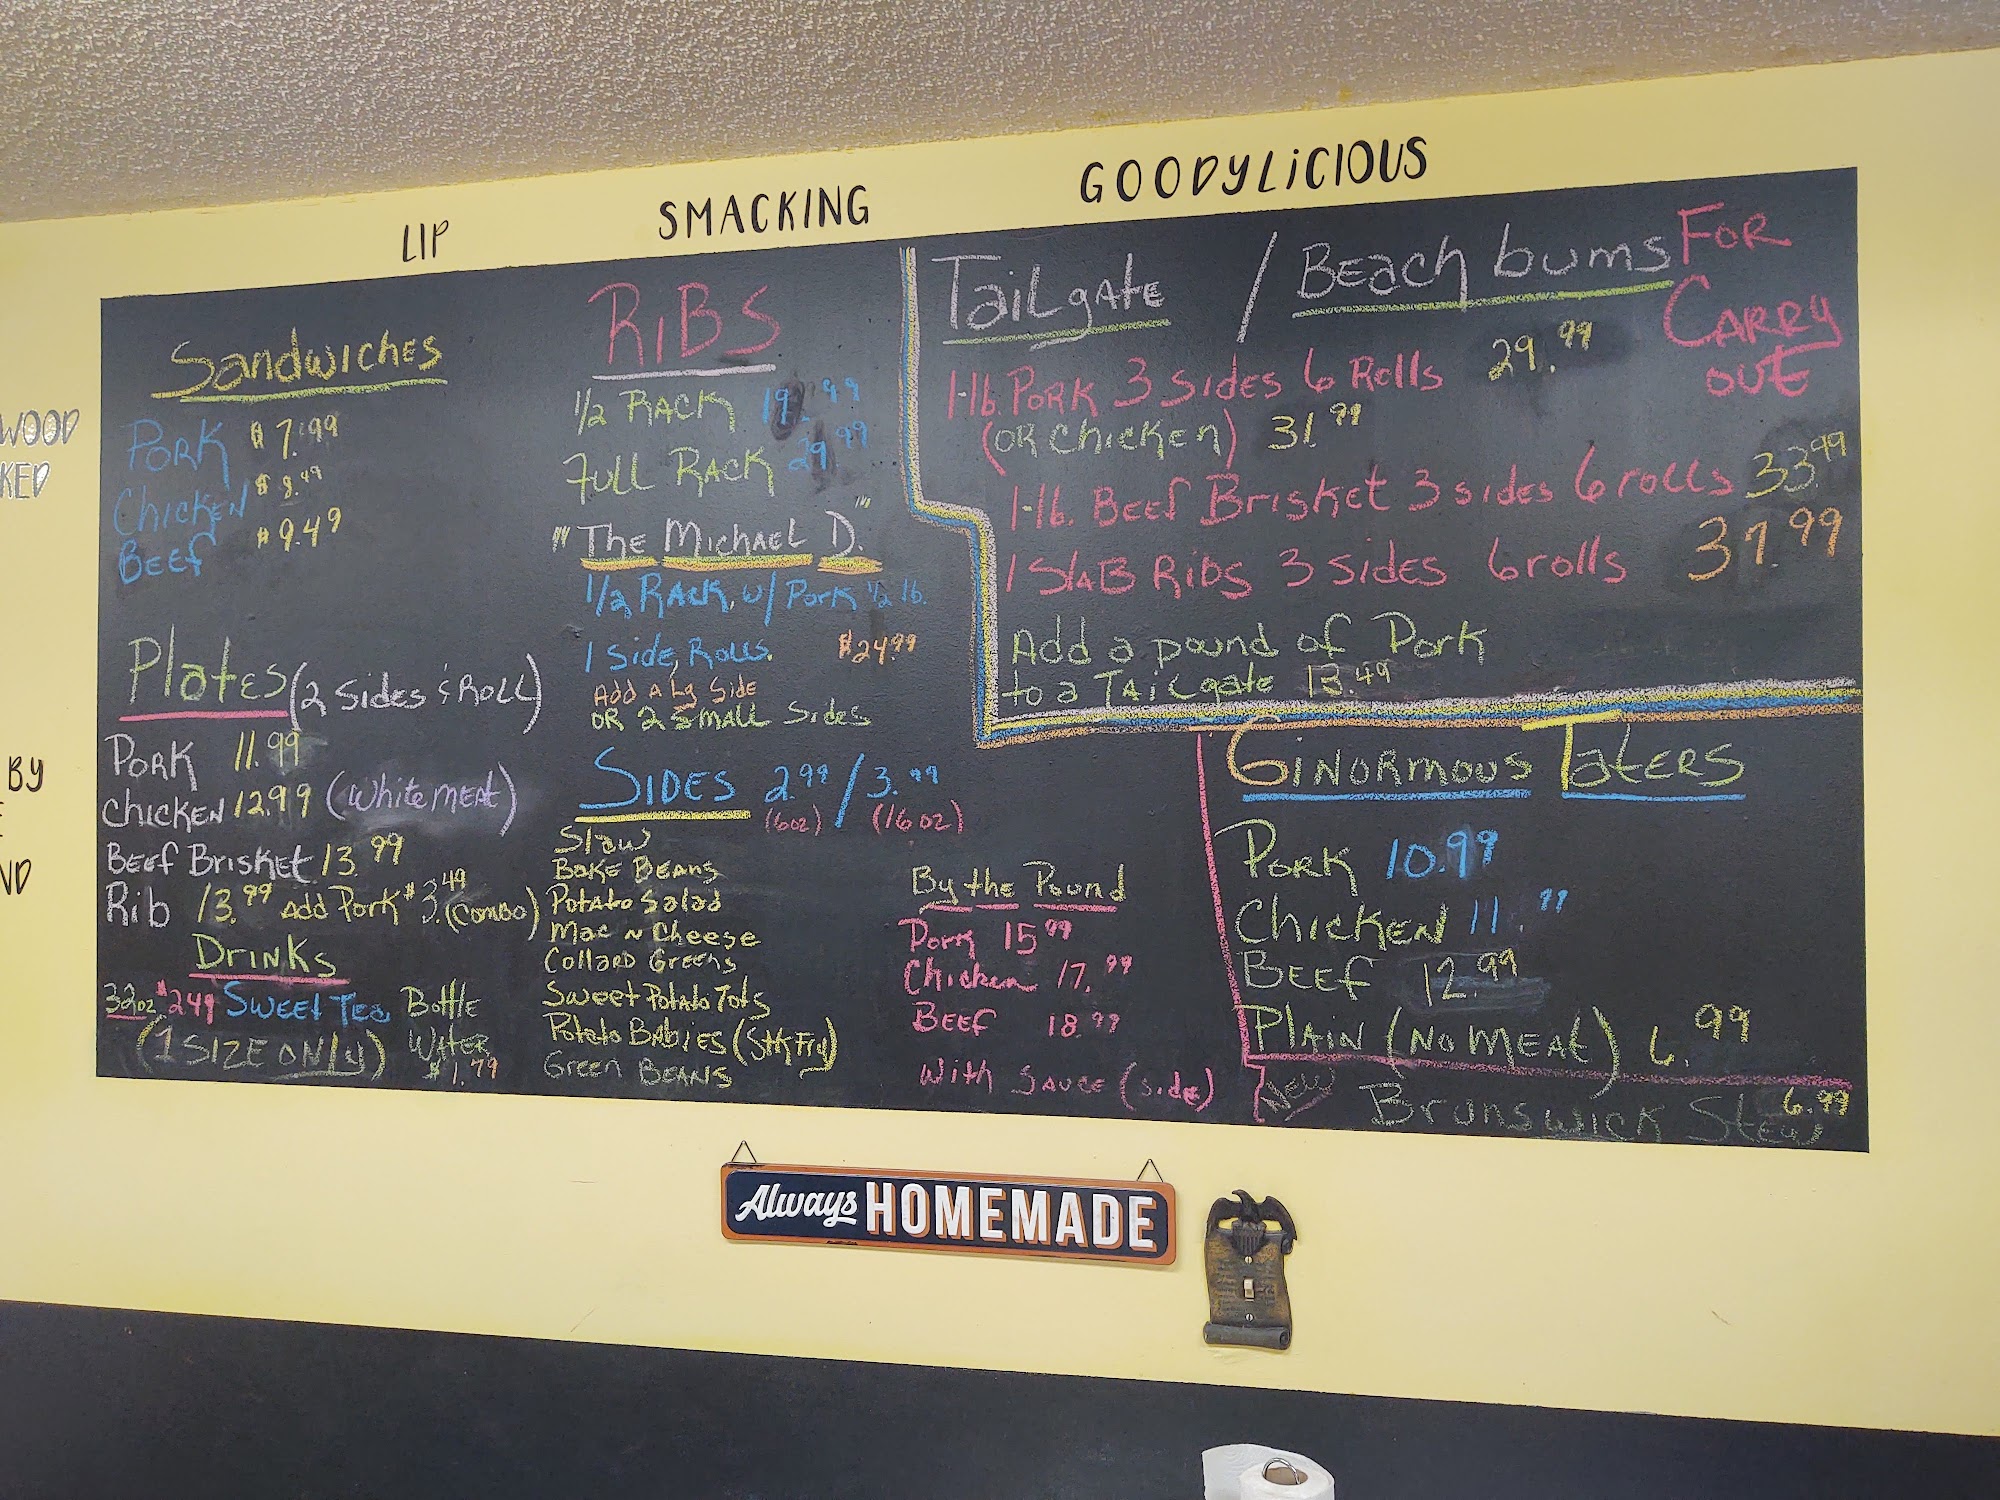 LIP SMACKING GOODYLiCIOUS
WOOD
KED
BY
ND
Sandwiches
Pork $7.99
Chicken $8.49
Beef $9.49
Plates (2 Sides & Roll)
Pork 11.99
Chicken 12.99 (White meat)
Beef Brisket 13.99
Rib 13.99 Add Pork $3.49 (Combo)
Drinks
32oz $2.49 Sweet Tea
(1 SIZE ONLY)
Bottle
Water
$1.79
RiBS
1/2 Rack 19.99
Full Rack 29.99
"The Michael D."
1/2 Rack w/ Pork 1/2 lb.
1 Side, Rolls. $24.99
Add A Lg Side
OR 2 Small Sides
Sides 2.99 / 3.99
(6oz) (16oz)
Slaw
Bake Beans
Potato Salad
Mac N Cheese
Collard Greens
Sweet Potato Tots
Potato Babies (Stk Frd)
Green Beans
By the Pound
Pork 15.99
Chicken 17.99
Beef 18.99
With Sauce (side)
Tailgate / Beach bums
For
Carry
out
1-lb. Pork 3 Sides 6 Rolls 29.99
(OR Chicken) 31.99
1-lb. Beef Brisket 3 sides 6 rolls 33.99
1 Slab Ribs 3 sides 6 rolls 37.99
Add a pound of Pork
to a Tailgate 13.49
Ginormous Taters
Pork 10.99
Chicken 11.99
Beef 12.99
Plain (No Meat) 6.99
New Brunswick Stew 6.99
Always HOMEMADE